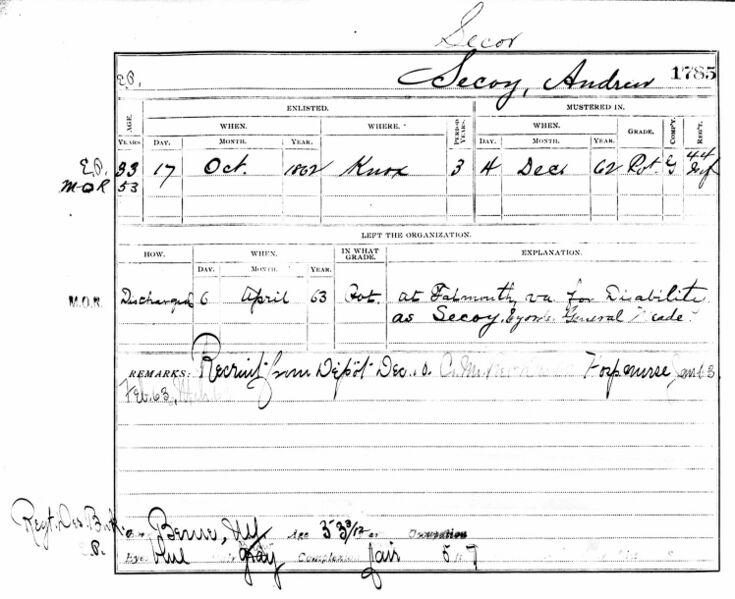 Secor
E.P. Secoy, Andrew 1785
AGE. ENLISTED. PERIOD YEARS. MUSTERED IN.
WHEN. WHERE. WHEN. GRADE. COMP'Y. REG'T.
YEARS DAY. MONTH. YEAR. DAY. MONTH. YEAR.
E.P. 33 17 Oct. 1862 Knox 3 4 Dec. 62 Pvt. G 44 Inf
M.O.R 53
LEFT THE ORGANIZATION.
HOW. WHEN. IN WHAT GRADE. EXPLANATION.
DAY. MONTH YEAR.
M.O.R. Discharged 6 April 63 Pvt. at Falmouth, va for Disability
as Secoy, General Meade
REMARKS: Recruit from Depôt Dec. Hosp nurse Jan 63
Feb. 63,
Regt. Des. Book Berne, NY Age Occupation
E.P. Eyes blue Hair gray Complexion fair 5 7